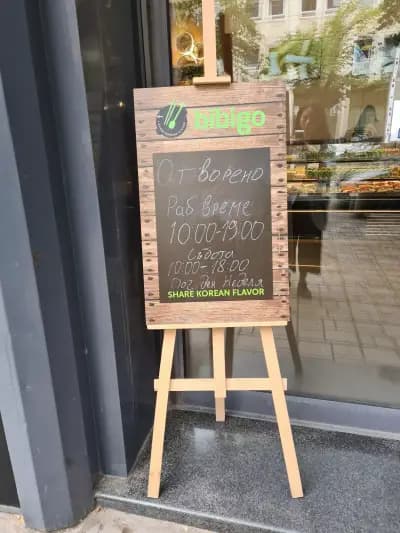 bibigo
Отворено
Раб. време
10:00-19:00
Събота
10:00-18:00
Поч. ден Неделя
SHARE KOREAN FLAVOR